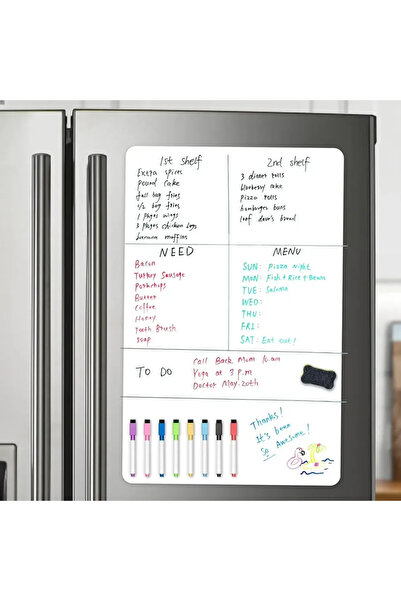 1st shelf
Extra spices
pound cake
full bag fries
1/2 bag fries
1 pkges wings
3 pkges chicken legs
banana muffins
2nd shelf
3 dinner rolls
blueberry cake
pizza rolls
hamburger buns
loaf dave's bread
NEED
Bacon
Turkey Sausage
Porkchops
Butter
Coffee
Honey
Tooth Brush
Soap
MENU
SUN: Pizza Night
MON: Fish + Rice + Beans
TUE:
WED:
THU:
FRI:
SAT: Eat out!
TO DO
Call Back Mom 10.am
Yoga at 3 p.m
Doctor May.20th
Thanks!
It's been
So Awesome!